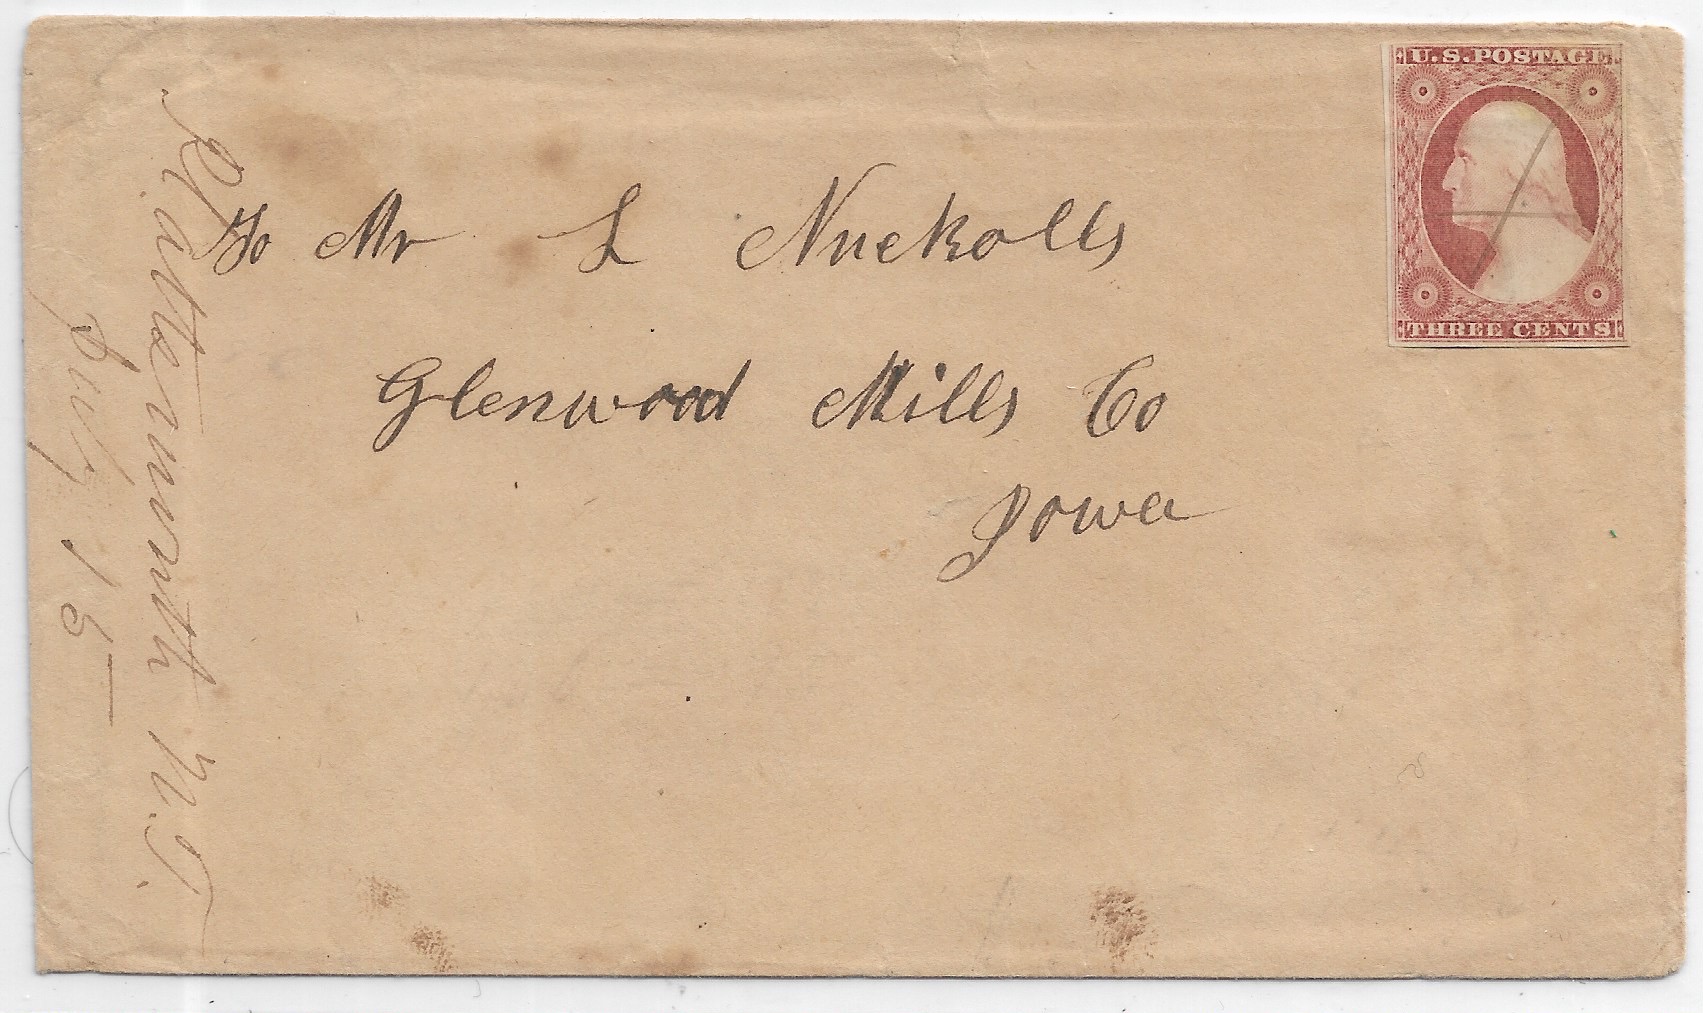 U.S. POSTAGE
THREE CENTS
To Mr L Nuckolls
Glenwood Mills Co
Iowa
Plattesmouth N.T.
July 15